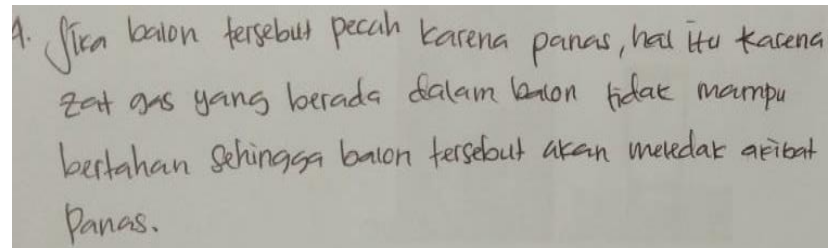 4. Jika balon tersebut pecah karena panas, hal itu karena
zat gas yang berada dalam balon tidak mampu
bertahan sehingga balon tersebut akan meledak akibat
panas.